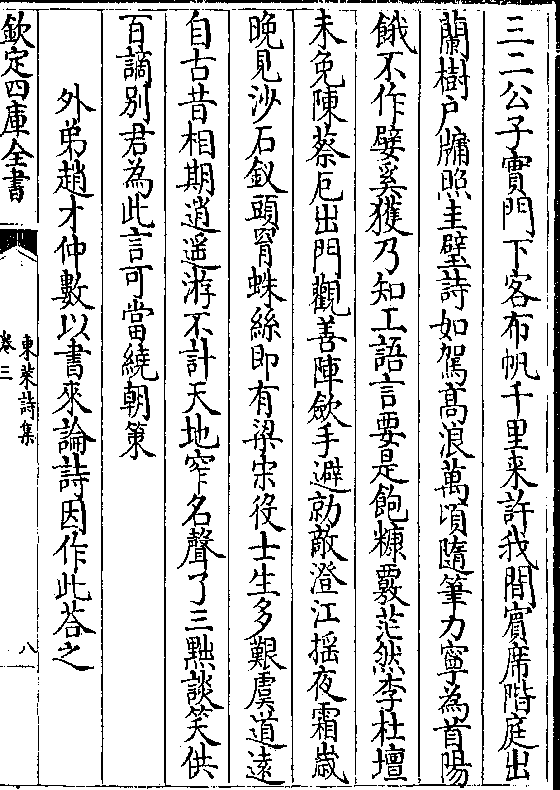 三二公子實門下客布帆千里来許我間賓席階庭出
蘭樹户牖照圭璧詩如駕髙浪萬頃隨筆力寧為首陽
餓不作嬖奚獲乃知工語言要是飽糠覈茫然李杜壇
未免陳蔡厄出門觀善陣歛手避勍敵澄江揺夜霜嵗
晚見沙石釵頭𦊰蛛絲即有梁宋役士生多艱虞道遠
自古昔相期逍遥游不計天地窄名聲了三㸃談笑供
百謫别君為此言可當繞朝策
外弟趙才仲數以書來論詩因作此荅之
欽定四庫全書
東萊詩集
卷三
八